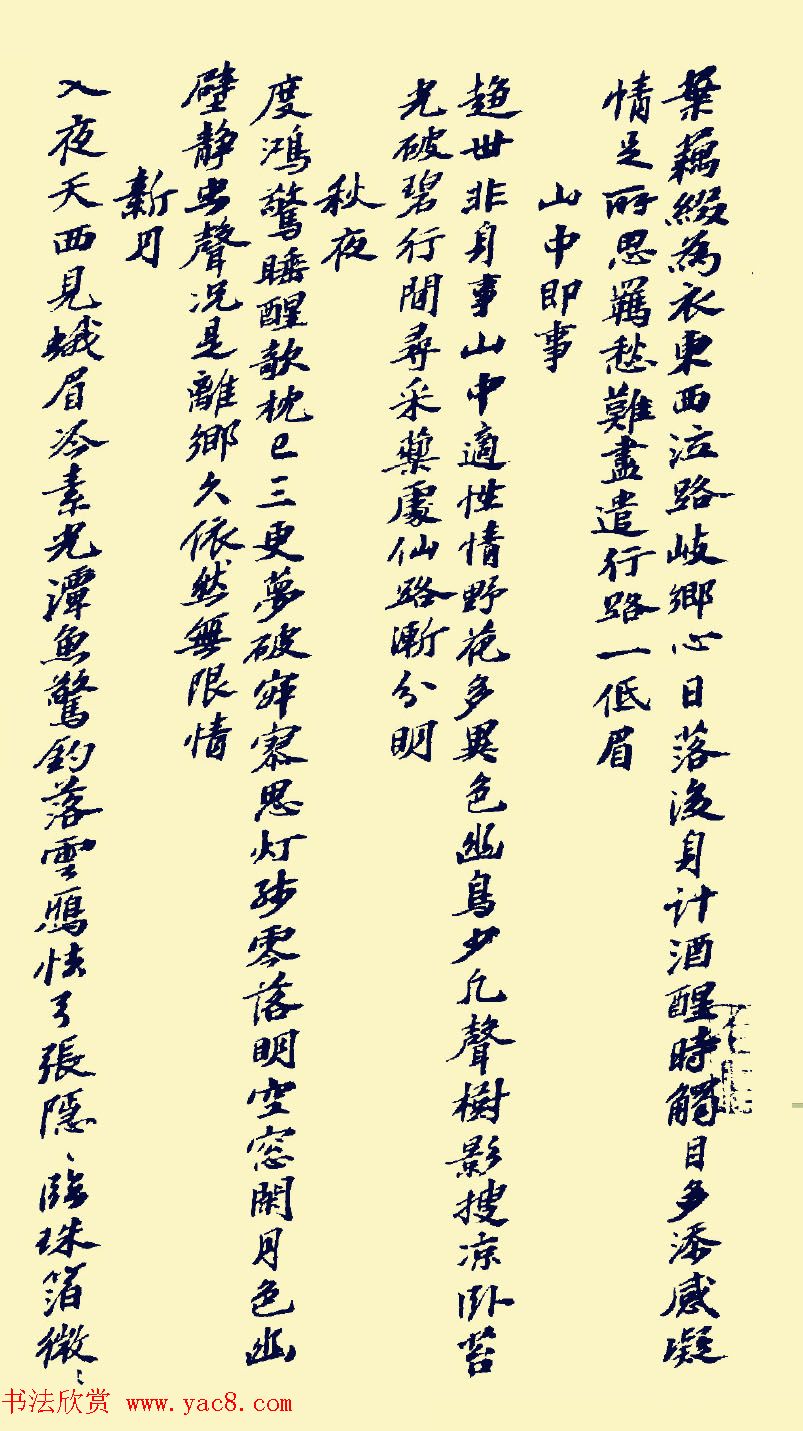 葉藕綴為衣東西泣路岐鄉心日落後身計酒醒時觸目多添感凝
情足所思羈愁難盡遣行路一低眉
山中即事
趋世非身事山中適性情野花多異色幽鳥少凡聲樹影搜凉卧苔
光破碧行閒尋采藥處仙路漸分明
秋夜
度鴻驚睡醒欹枕已三更夢破寂寥思灯殘零落明空窓閑月色幽
壁静虫聲况是離鄉久依然無限情
新月
入夜天西見蛾眉冷素光潭魚驚釣落雲鴈怯弓張隱〻臨珠箔微〻
书法欣赏 www.yac8.com